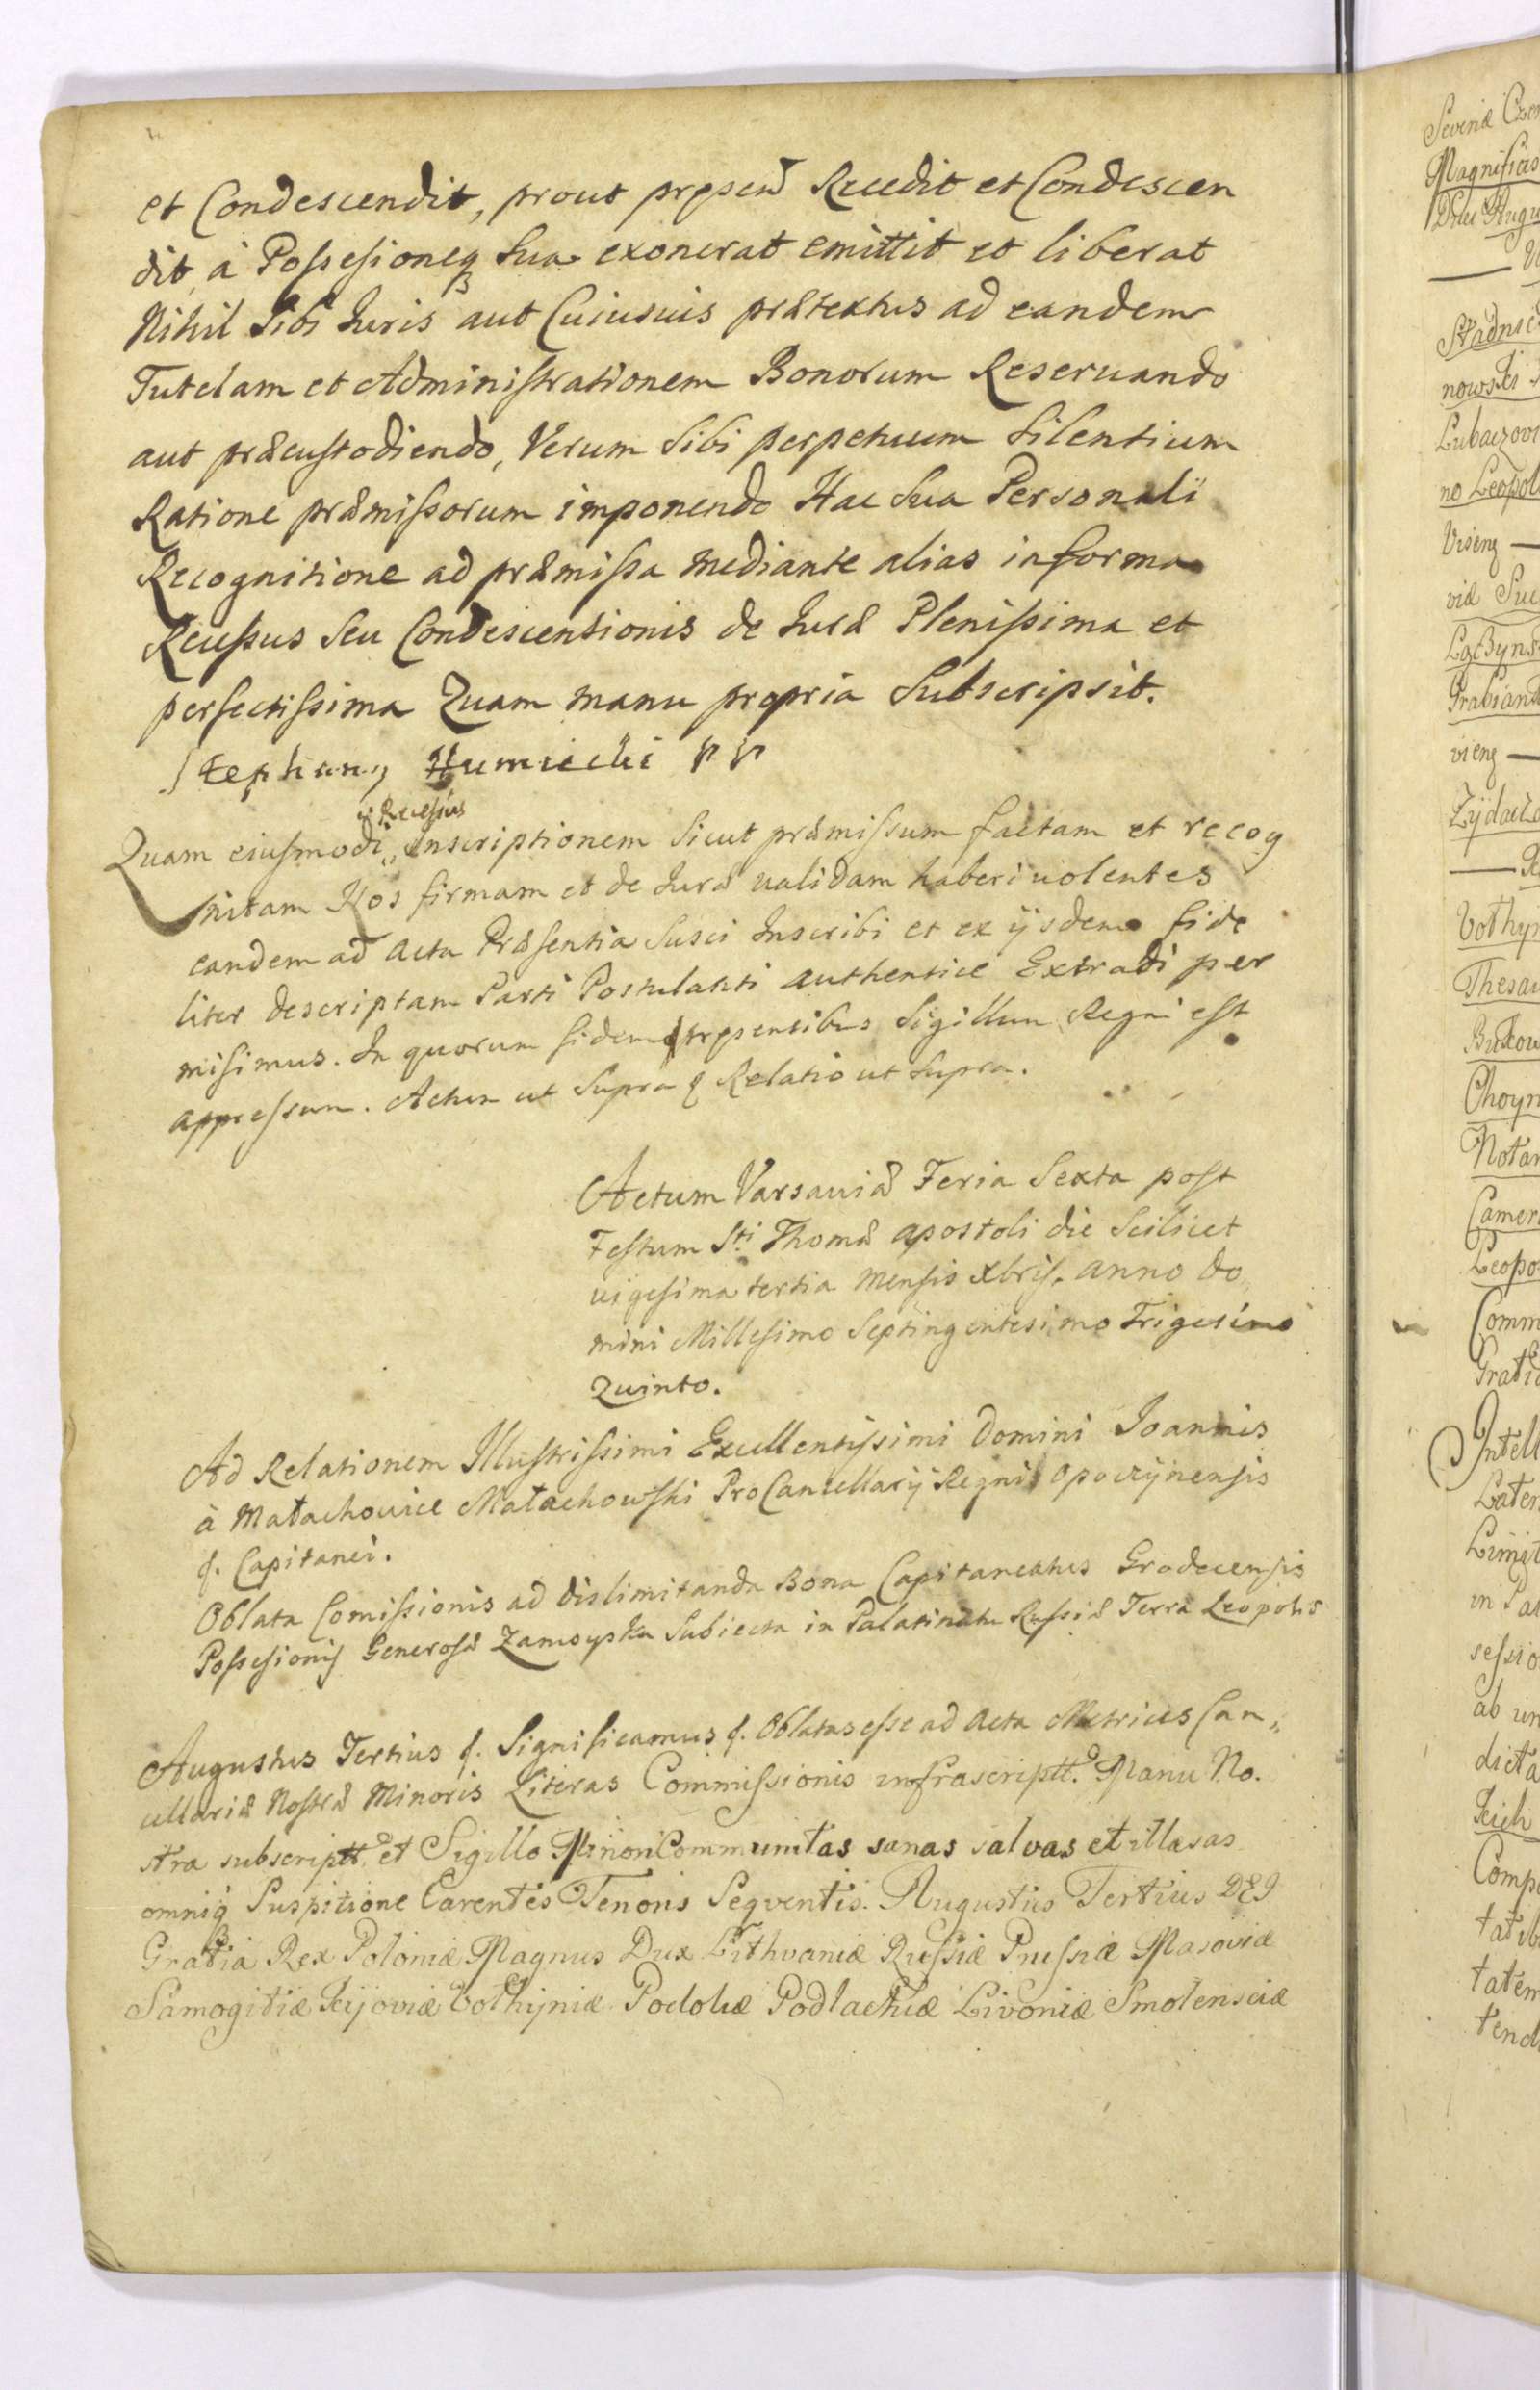 et Condescendit, prout pręsent Recedit et Condescen
dit, à Possesioneq₃ sua exonerat emittit et liberat
Nihil Sibi Iuris aut Cuiusuis prætextus ad eandem
Tutelam et Administrationem Bonorum Reseruando
aut præcustodiendo, Verum Sibi perpetuum Silentium
Ratione præmissorum imponendo Hac sua Personali
Recognitione ad præmissa mediante alias in forma
Recessus Seu Condescensionis de Iure Plenissima et
perfectissima Quam manu propria Subscripsit.
Stephanus Humiecki
Recessus
Quam eiusmodi Inscriptionem Sicut præmissum factam et recog
nitam Nos firmam et de Iure ualidam haberi uolentes
eandem ad Acta Præsentia Susci Inscribi et ex ijsdem fide
liter descriptam Parti Postulanti authentice Extradi per
misimus. In quorum fidem pręsentibus Sigillum Regni est
appressum. Actum ut Supra & Relatio ut Supra.
Actum Varsauiæ Feria Sexta post
Festum Sti Thomæ apostoli die Scilicet
uigesima tertia mensis Xbris. anno Do,,
mini Millesimo Septingentesimo Trigesimo
Quinto.
Ad Relationem Illustrissimi Excellentissimi Domini Joannis
à Małachowice Małachowski ProCancellarij Regni Opoczynensis
&. Capitanei.
Oblata Comissionis ad dislimitanda Bona Capitaneatus Grodecensis
Possesionis Generosæ Zamoyska Subiecta in Palatinatu Russiæ Terra Leopolis
Augustus Tertius &. Significamus &. Oblatas esse ad Acta Metrices Can,,
cellariæ Nostræ Minoris Literas Commissionis infrascriptt. Manu No.
stra subscriptt. et Sigillo Minori Communitas sanas salvas et illæsas
omniq Suspitione Carentes Tenoris Seqventis. Augustus Tertius DEI
Gratia Rex Poloniæ Magnus Dux Lithvaniæ Russiæ Prussiæ Masoviæ
Samogitiæ Kijoviæ Volhyniæ Podoliæ Podlachiæ Livoniæ Smolensciæ
Severiæ
Magnificis
Lubaczov
no Leopol
Thesau
Choyn
Notar
Leopo
Comm
Grati
Intell
Later
Limit
in Pal
sessio
ab un
dicta
Comp
tatib
tatem
tend